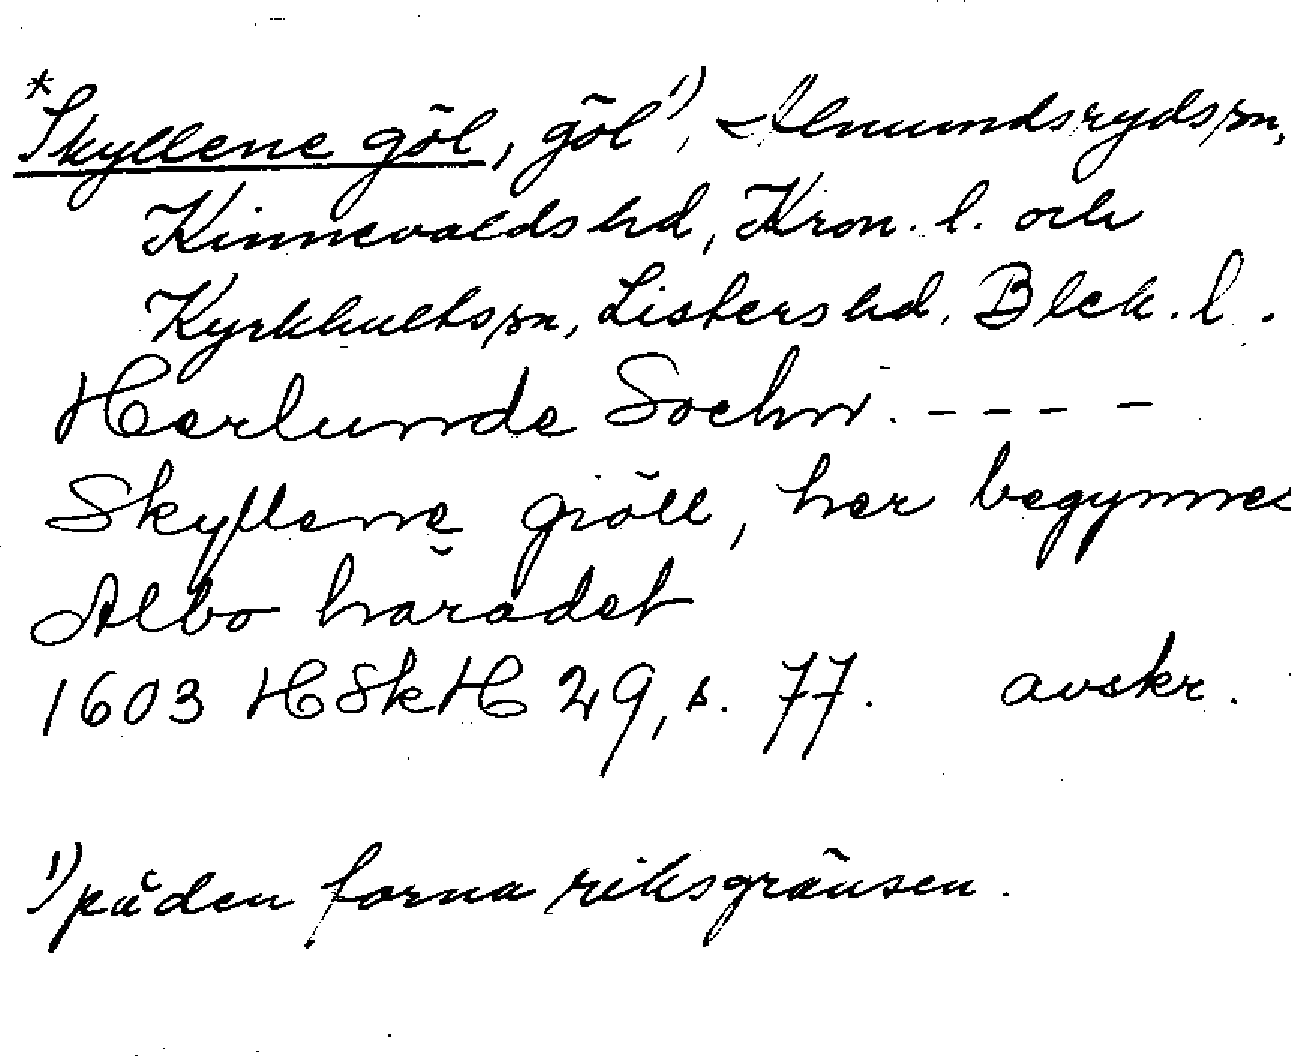 *Skyllene göl, göl¹⁾, Almundsryds sn,
Kinnevalds hd, Kron. l. och
Kyrkhults sn, Listers hd, Blek. l.
Herlunde Sochn. - - - -
Skyllene giöll, her begynnes
Albo häradet
1603 HSkH 29, s. 77. avskr.
¹⁾ på den forna riksgränsen.